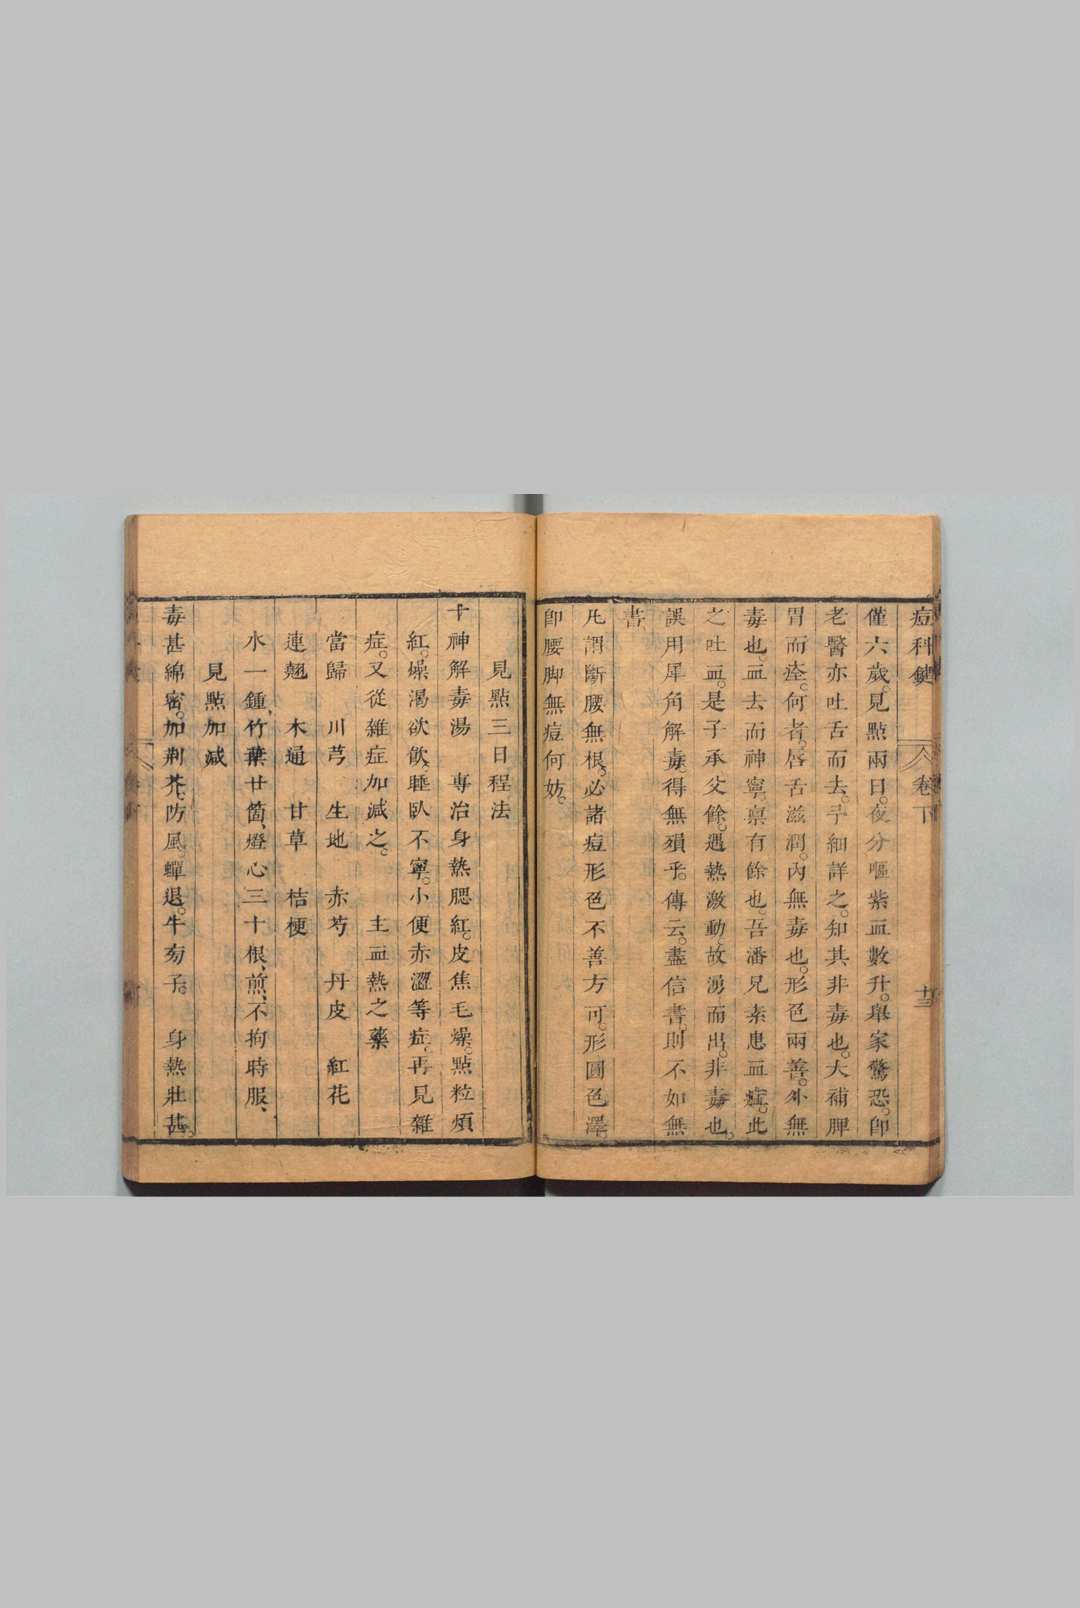 痘科鍵 卷下 十三
僅六歲。見點兩日。夜分嘔紫血數升。舉家驚恐。卽
老醫亦吐舌而去。予細詳之。知其非毒也。大補脾
胃而痊。何者。唇舌滋潤。內無毒也。形色兩善。外無
毒也。血去而神寧。稟有餘也。吾潘兄素患血症。此
之吐血。是子承父餘。遇熱激動。故湧而出。非毒也。
誤用犀角解毒。得無殞乎。傳云。盡信書。則不如無
書。
凡謂斷腰無根。必諸痘形色不善方可。形圓色澤。
卽腰脚無痘何妨。
見點三日程法
十神解毒湯 專治身熱腮紅。皮焦毛燥。點粒煩
紅。燥渴欲飲。睡臥不寧。小便赤澀等症。再見雜
症。又從雜症加減之。 主血熱之藥
當歸 川芎 生地 赤芍 丹皮 紅花
連翹 木通 甘草 桔梗
水一鍾、竹葉廿箇、燈心三十根、煎、不拘時服、
見點加減
毒甚綿密。加荆芥。防風。蟬退。牛蒡子。 身熱壯甚。